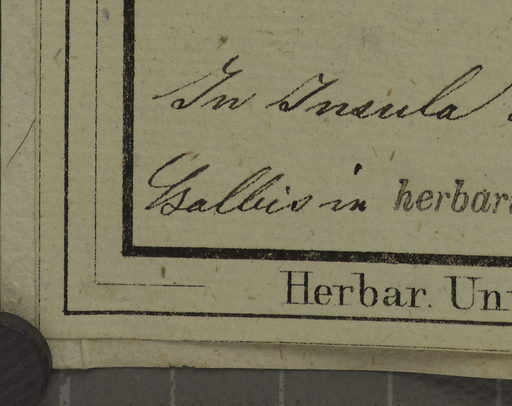 In Insula
Balbis in herbar
Herbar. Un